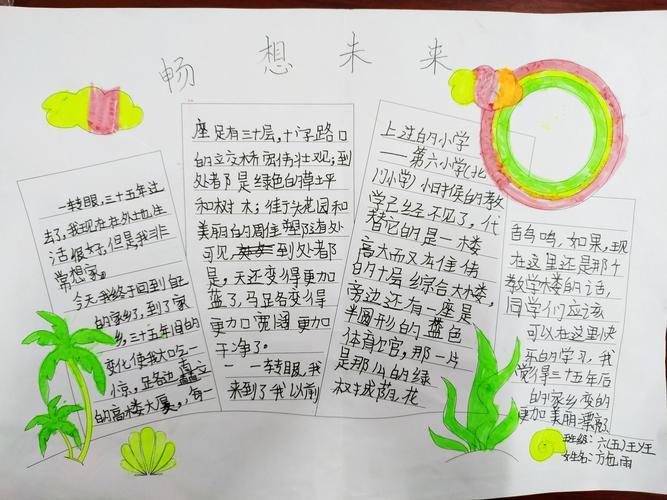 畅想未来
一转眼,三十五年过
去了,我现在在外地生
活很好,但是我非
常想家。
今天,我终于回到自己
的家乡了,到了家
乡,三十五年后的
变化使我大吃一
惊,足各边矗立
的高楼大厦,每一
座足有三十层,十字路口
的立交桥宏伟壮观;到
处都是绿色的草坪
和树木;街心花园和
美丽的周佳塑随处
可见,到处都
是,天还变得更加
蓝了,马足各变得
更加宽阔更加
干净了。
一转眼,我
来到了我以前
上过的小学
——第六小学(北
门小学)小时候的教
学已经不见了,代
替它的是一楼
高大而又雄伟
的十层综合大楼,
旁边还有一座是
半圆形的蓝色
体育官,那一片
是那么的绿
树成荫,花
鸟鸣,如果,现
在这里还是那个
教学楼的话,
同学们应该
可以在这里快
乐的学习,我
觉得三十五年后
的家乡变的
更加美丽漂亮
班级:六(五)王
姓名:方雨